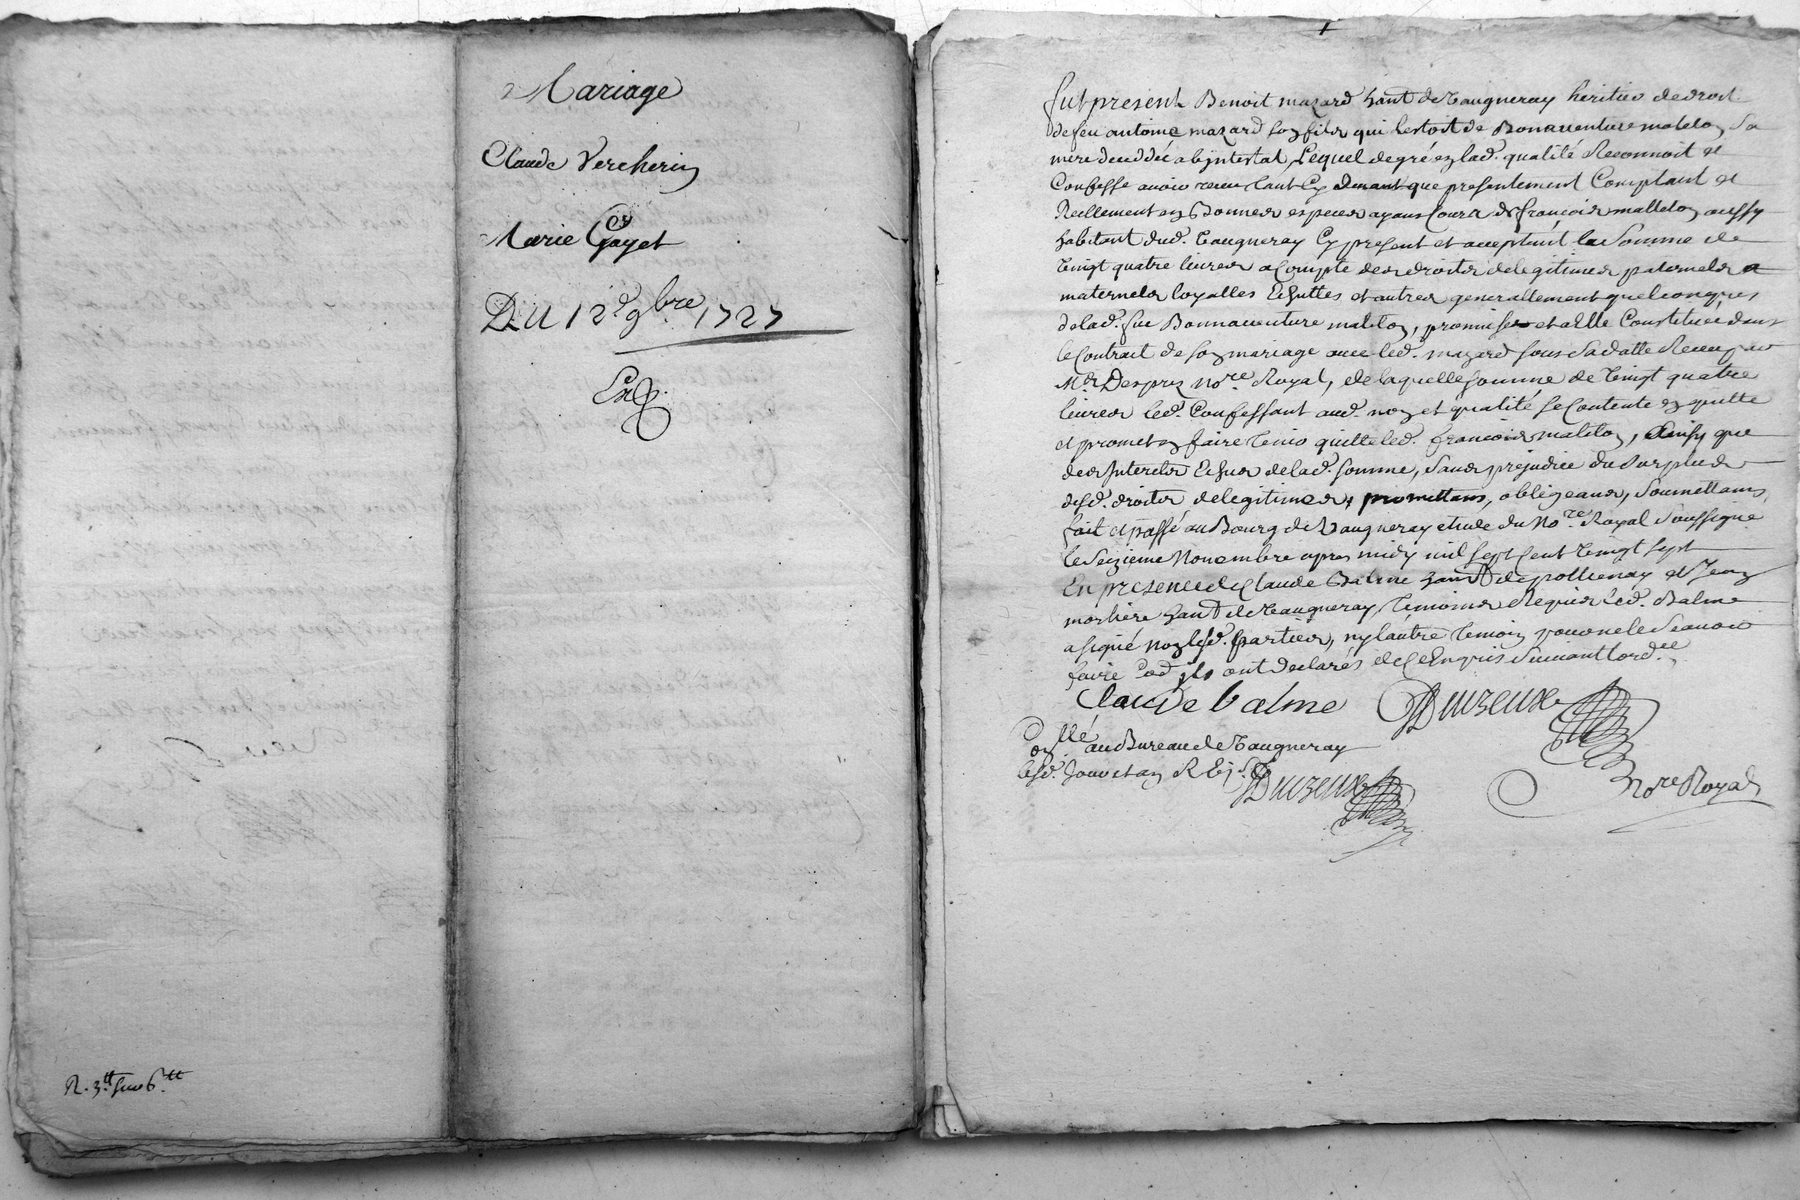 Mariage
Claude Vercherin
Marie Gayet
DU 12e 9bre 1727
Ex
R. 3tt sur 6tt
fut present Benoit mazard hant de Vaugneray heritier de droit
de feu antoine mazard son fils qui lestoit de Bonnaventure maleton sa
mere deceddée abintestat, Lequel de gré en lad. qualité Reconnoit et
Confesse avoir receu tant Cy devant que presentement Comptant et
Reellement en Bonnes especes ayans Cours de françois malleton aussy
habitant dud. Vaugneray Cy present et acceptant la Somme de
Vingt quatre livres a Compte des droits de legitimes paternels et
maternels loyalles Echuttes et autres generallement quelconques
de lad. fue Bonnaventure maleton, promises et a Elle Constituée dans
le Contrat de son mariage avec led. mazard sous sa datte Receu par
Me Desprez nore Royal, de laquelle somme de Vingt quatre
livres led. Confessant aud. nom et qualité se Contente en quitte
et promet en faire tenir quitte led. françois maleton, Ainsy que
des Interets Echus de lad. somme, sans prejudice du surplus
desd. droits de legitimes, promettans, obligeans, soumettans,
fait et passé au Bourg de Vaugneray etude du Nore Royal soussigné
le Seizieme Novembre apres midy mil sept Cent Vingt sept
En presence de Claude Balme hant de pollienay et Jean
morliere hant de Vaugneray, temoins Requis led. Balme
a signé non lesd. parties, ny lautre temoin pour ne le scavoir
faire Comme ils ont declarés de Ce Enquis suivant lord.ce
Claude balme Duizeux
Conllé au Bureau de Vaugneray
nore Royal
lesd. Jour et an R
Duizeux